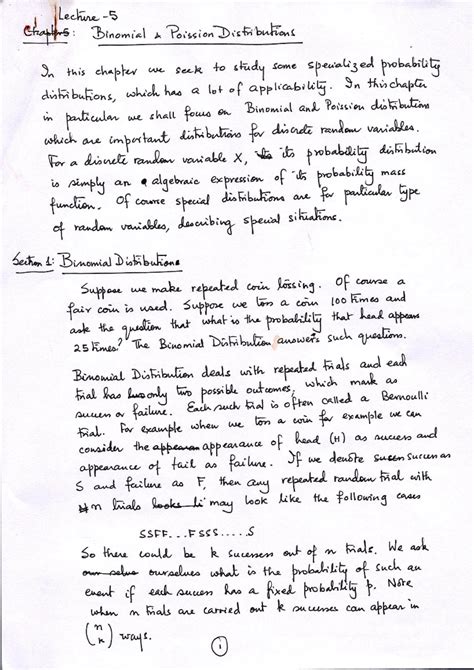 Lecture - 5
Chapter 5: Binomial & Poission Distributions
In this chapter we seek to study some specialized probability
distributions, which has a lot of applicability. In this chapter
in particular we shall focus on Binomial and Poission distributions
which are important distributions for discrete random variables.
For a discrete random variable X, its its probability distribution
is simply an algebraic expression of its probability mass
function. Of course special distributions are for particular type
of random variables, describing special situations.
Section 1: Binomial Distributions
Suppose we make repeated coin tossing. Of course a
fair coin is used. Suppose we toss a coin 100 times and
ask the question that what is the probability that head appears
25 times? The Binomial Distribution answers such questions.
Binomial Distribution deals with repeated trials and each
trial has only two possible outcomes, which mark as
success or failure. Each such trial is often called a Bernoulli
trial. For example when we toss a coin for example we can
consider the appearan appearance of head (H) as success and
appearance of tail as failure. If we denote sucess success as
S and failure as F, then any repeated random trial with
n trials looks li may look like the following cases
SSFF...FSSS.....S
So there could be k sucesses out of n trials. We ask
our selve ourselves what is the probability of such an
event if each success has a fixed probability p. Note
when n trials are carried out k successes can appear in
(n k) ways.
1